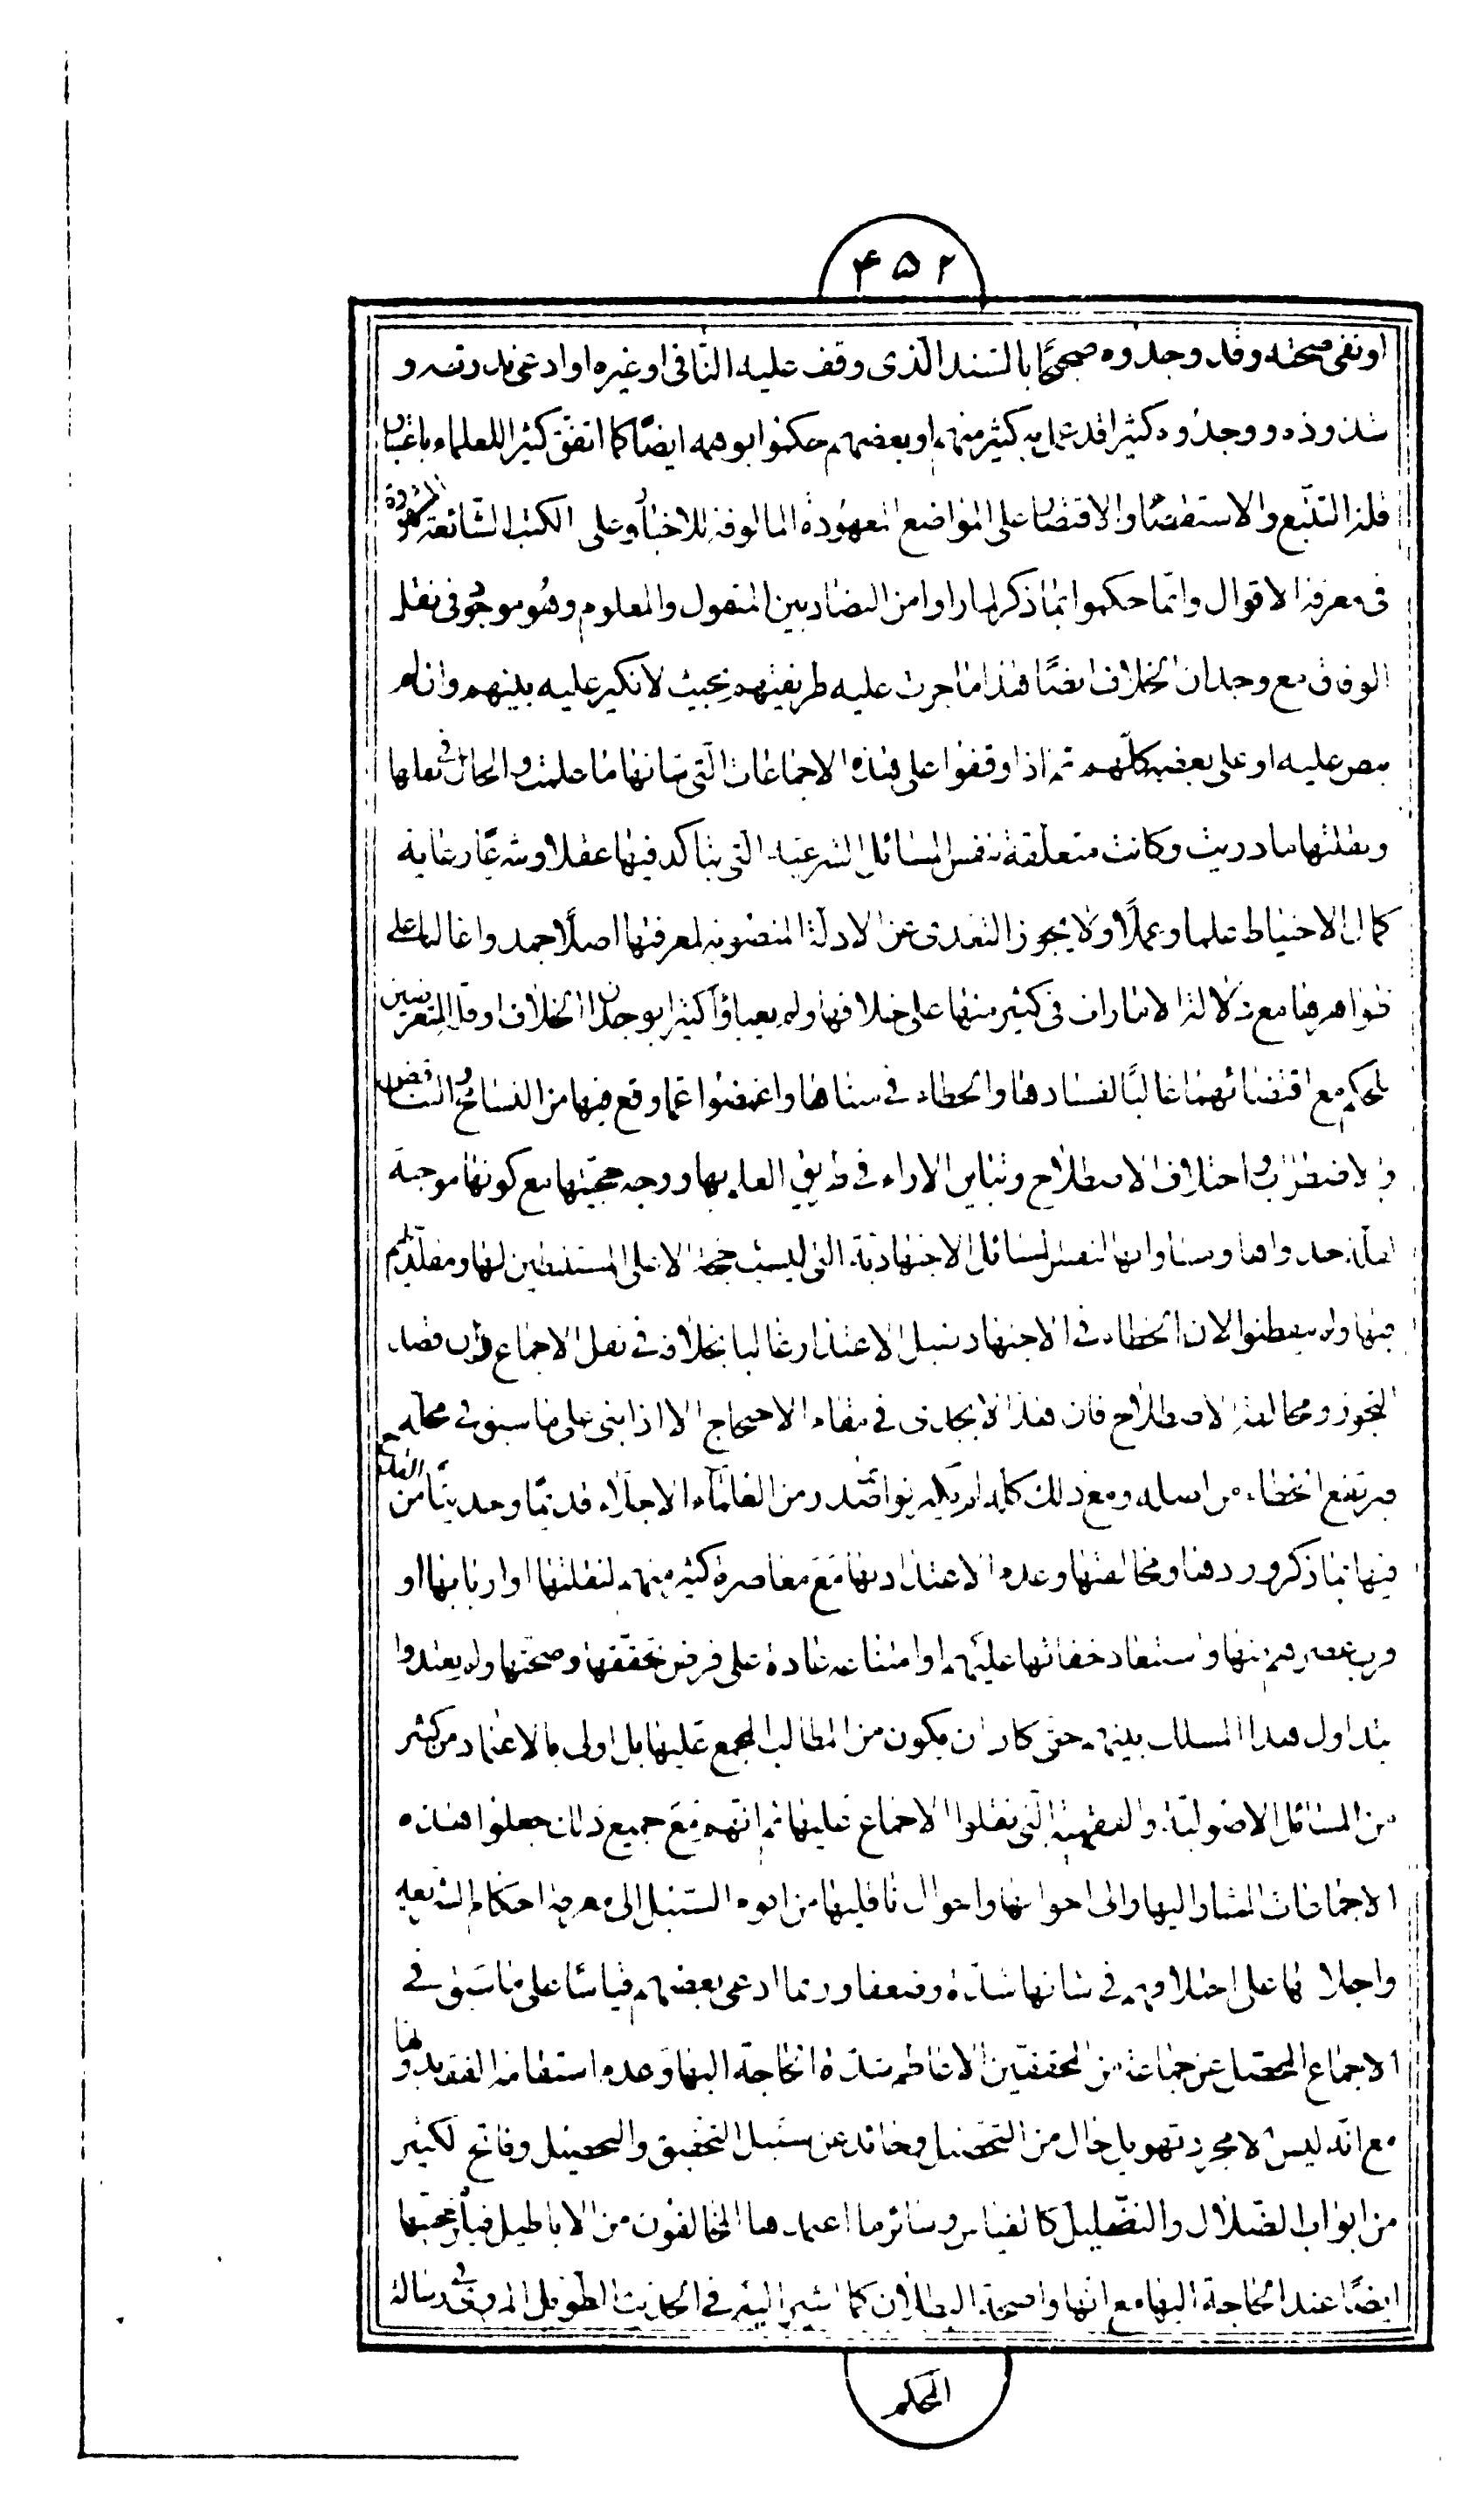 ۴۵۲
او نفى صحته وقد وجدوه صحيحا بالسند الذى وقف عليه النافى او غيره او ادعى ندرته و
شذوذه ووجدوه كثيرا قد عمل به كثير منهم او بعضهم حكموا بوهمه ايضا كما اتفق كثيرا للعلماء باعتبار
قلة التتبع والاستقصاء والاقتصار على المواضع المعهودة المالوفة للاخبار وعلى الكتب الشائعة المشهورة
فى معرفة الاقوال وانما حكموا بما ذكر لما راوا من التضاد بين المنقول والمعلوم وهو موجود فى نقل
الوفاق مع وجدان الخلاف ايضا فهذا ما جرت عليه طريقتهم بحيث لا نكير عليه بينهم وان لم
ينص عليه او على بعضه كلهم ثم اذا وقفوا على هذه الاجماعات التى شانها ما علمت والحال فى نقلها
ونقلتها ما دريت وكانت متعلقة بنفس المسائل الشرعية التى يتاكد فيها عقلا وشرعا رعاية
كمال الاحتياط علما وعملا ولا يجوز التعدى عن الادلة المنصوبة لمعرفتها اصلا جمدوا غالبا على
ظواهرها مع دلالة الامارات فى كثير منها على خلافها ولم يعباوا كثيرا بوجدان الخلاف او قلة المتعرضين
للحكم مع اقتضائهما غالبا لفسادها والخطاء فى بنائها واغمضوا عما وقع فيها من التسامح والتناقض
والاضطراب واختلاف الاصطلاح وتباين الاراء فى طريق العلم بها ووجه حجيتها مع كونها موجبة
لقلة جدواها ومساواتها لنفس المسائل الاجتهادية التى ليست حجة الا على المستنبطين لها ومقلديهم
فيها ولم يتفطنوا لان الخطاء فى الاجتهاد سبيل الاعتذار غالبا بخلافه فى نقل الاجماع وان قصد
التجوز ومخالفة الاصطلاح فان هذا لا يجدى فى مقام الاحتجاج الا اذا بنى على ما سبق فى محله
فيرتفع الخطاء من اصله ومع ذلك كله لم يكترثوا بما صدر من العلماء الاجلاء قديما وحديثا من القدح
فيها بما ذكر وردها ومخالفتها وعدم الاعتداد بها مع معاصرة كثير منهم لنقلتها او اربابها او
قرب عصرهم منها واستبعاد خفائها عليهم او امتناعه عادة على فرض تحققها وصحتها ولم يعتدوا
بتداول هذا المسلك بينهم حتى كاد ان يكون من المطالب المجمع عليها بل اولى بالاعتماد من كثير
من المسائل الاصولية والفقهية التى نقلوا الاجماع عليها ثم انهم مع جميع ذلك جعلوا هذه
الاجماعات المشار اليها والى احوالها واحوال ناقليها من اقوم السبيل الى معرفة احكام الشريعة
واجلائها على اختلافهم فى شانها شدة وضعفا وربما ادعى بعضهم قياسا على ما سبق فى
الاجماع المحصل عن جماعة من المحققين الاعاظم شدة الحاجة اليها وعدم استقامة الفقه بدونها
مع انه ليس الا مجرد تهويل خال من التحصيل وحائد عن سبيل التحقيق والتحصيل وفاتح لكثير
من ابواب الضلال والتضليل كالقياس وسائر ما اعتمدها المخالفون من الاباطيل فيلزم حجيتها
ايضا عند الحاجة اليها مع انها واضحة البطلان كما اشير اليه فى الحديث الطويل المروى فى رسالة
المحكم